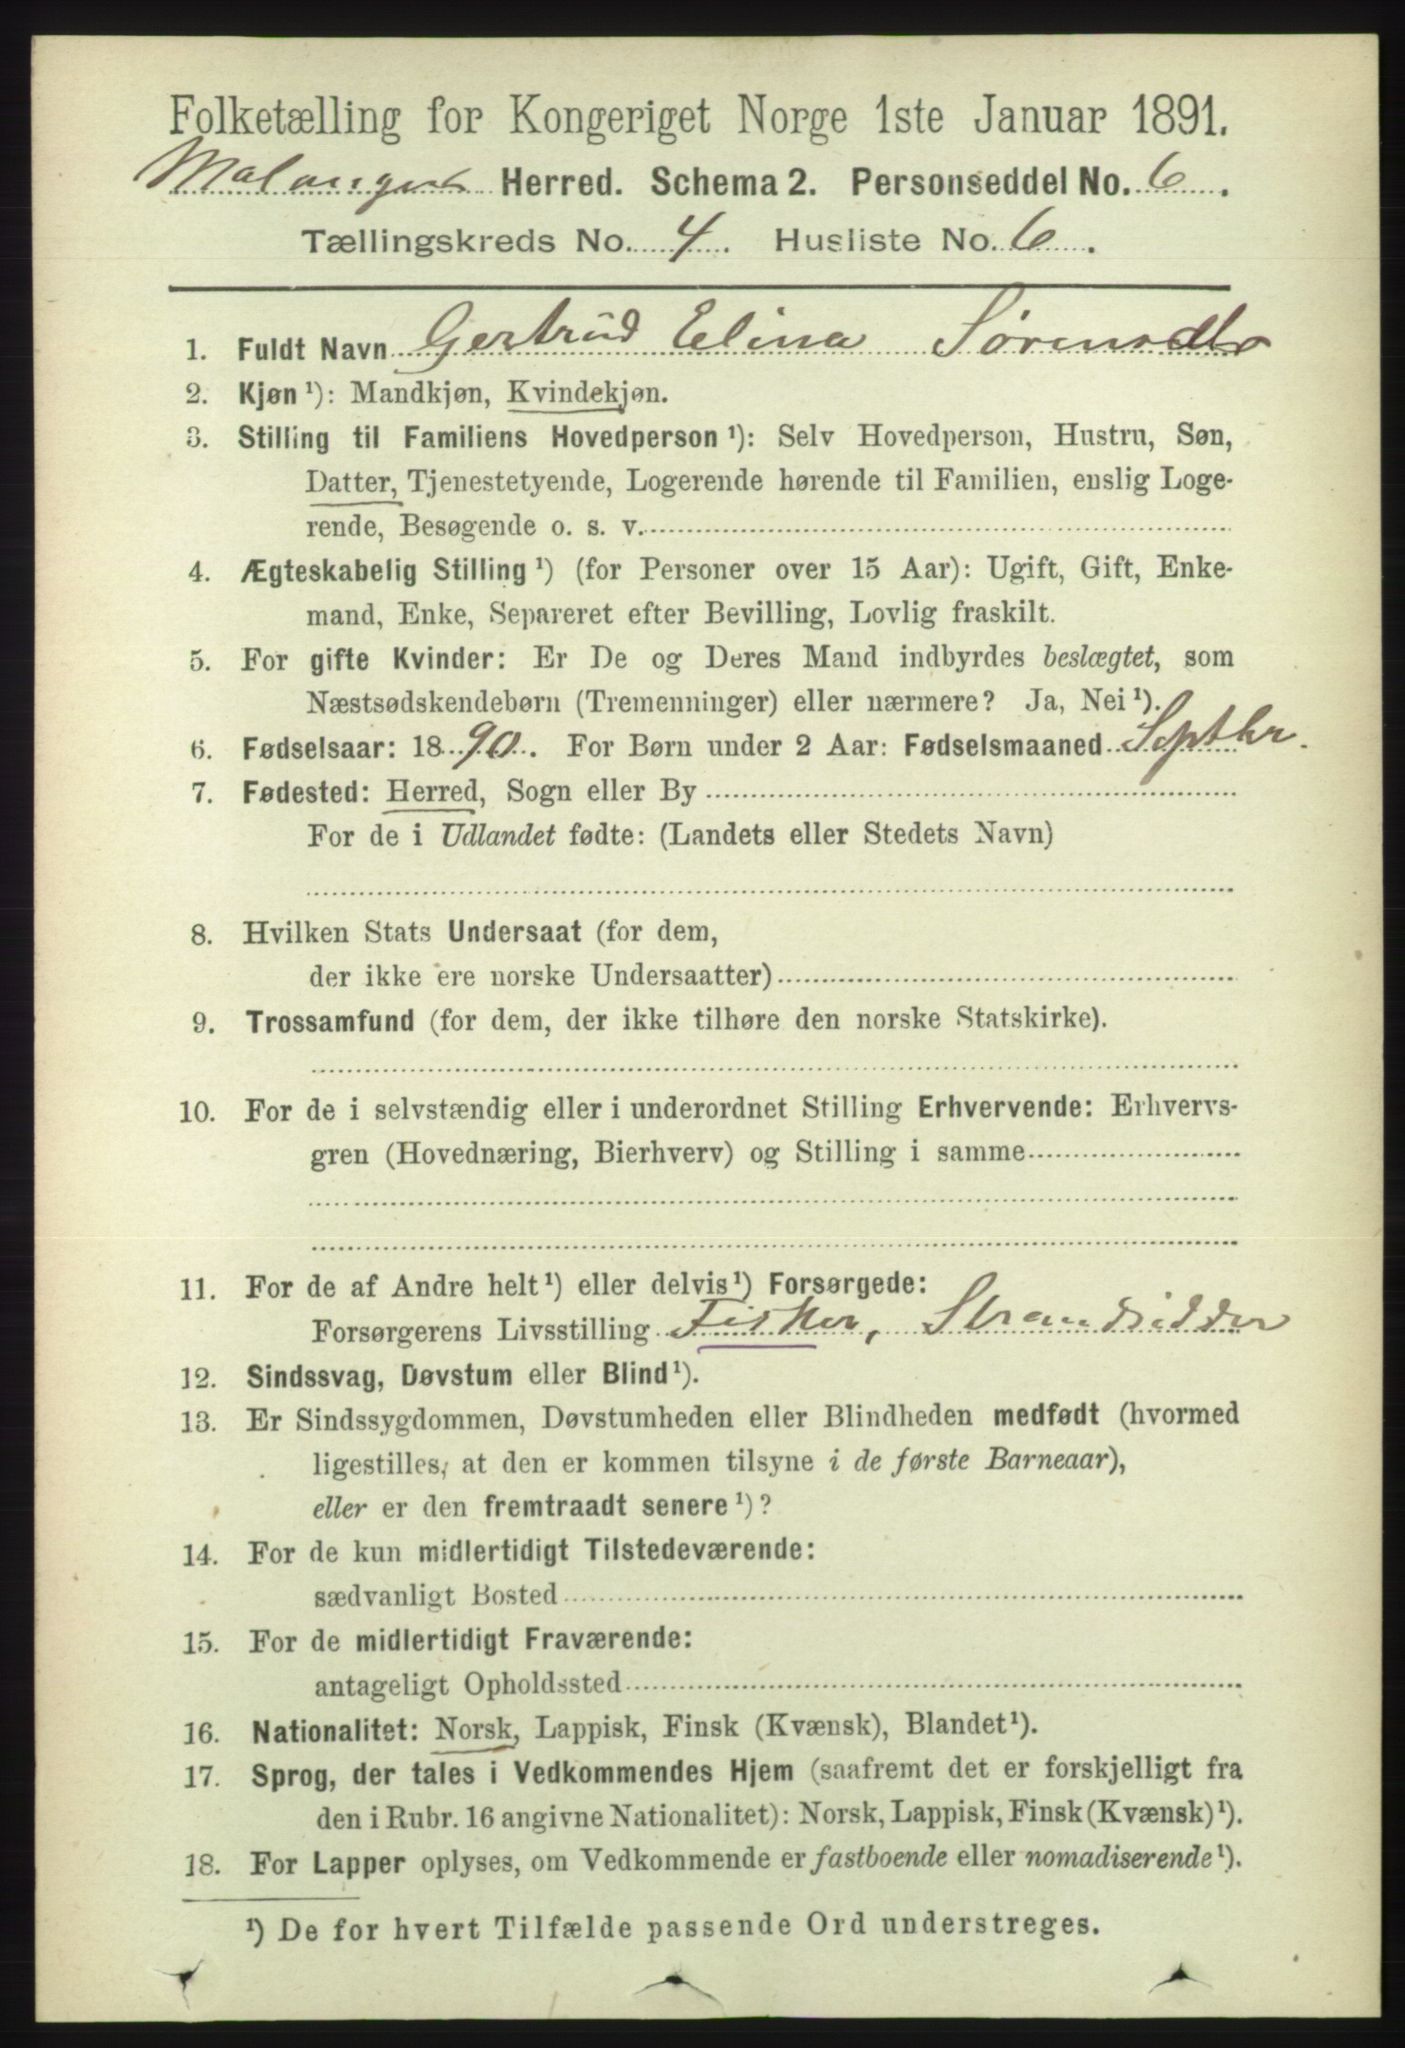 Folketælling for Kongeriget Norge 1ste Januar 1891.
Malangens Herred. Schema 2. Personseddel No. 6.
Tællingskreds No. 4. Husliste No. 6.
1. Fuldt Navn Gertrud Elina Sørensdtr
2. Kjøn ¹): Mandkjøn, Kvindekjøn.
3. Stilling til Familiens Hovedperson ¹): Selv Hovedperson, Hustru, Søn,
Datter, Tjenestetyende, Logerende hørende til Familien, enslig Loge-
rende, Besøgende o. s. v.
4. Ægteskabelig Stilling ¹) (for Personer over 15 Aar): Ugift, Gift, Enke-
mand, Enke, Separeret efter Bevilling, Lovlig fraskilt.
5. For gifte Kvinder: Er De og Deres Mand indbyrdes beslægtet, som
Næstsødskendebørn (Tremenninger) eller nærmere? Ja, Nei ¹).
6. Fødselsaar: 1890. For Børn under 2 Aar: Fødselsmaaned Septbr.
7. Fødested: Herred, Sogn eller By
For de i Udlandet fødte: (Landets eller Stedets Navn)
8. Hvilken Stats Undersaat (for dem,
der ikke ere norske Undersaatter)
9. Trossamfund (for dem, der ikke tilhøre den norske Statskirke).
10. For de i selvstændig eller i underordnet Stilling Erhvervende: Erhvervs-
gren (Hovednæring, Bierhverv) og Stilling i samme
11. For de af Andre helt ¹) eller delvis ¹) Forsørgede:
Forsørgerens Livsstilling Fisker, Strandsidder
12. Sindssvag, Døvstum eller Blind ¹).
13. Er Sindssygdommen, Døvstumheden eller Blindheden medfødt (hvormed
ligestilles, at den er kommen tilsyne i de første Barneaar),
eller er den fremtraadt senere ¹)?
14. For de kun midlertidigt Tilstedeværende:
sædvanligt Bosted
15. For de midlertidigt Fraværende:
antageligt Opholdssted
16. Nationalitet: Norsk, Lappisk, Finsk (Kvænsk), Blandet ¹).
17. Sprog, der tales i Vedkommendes Hjem (saafremt det er forskjelligt fra
den i Rubr. 16 angivne Nationalitet): Norsk, Lappisk, Finsk (Kvænsk) ¹).
18. For Lapper oplyses, om Vedkommende er fastboende eller nomadiserende ¹).
¹) De for hvert Tilfælde passende Ord understreges.